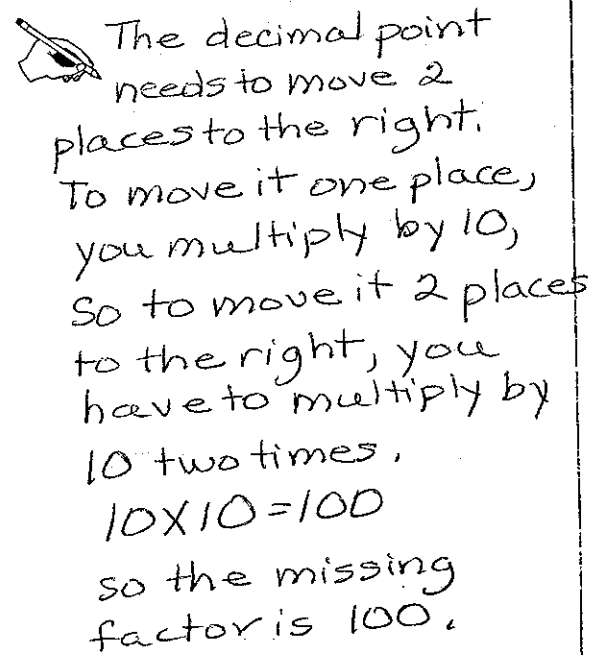 The decimal point
needs to move 2
places to the right.
To move it one place,
you multiply by 10,
So to move it 2 places
to the right, you
have to multiply by
10 two times.
10X10=100
so the missing
factor is 100.